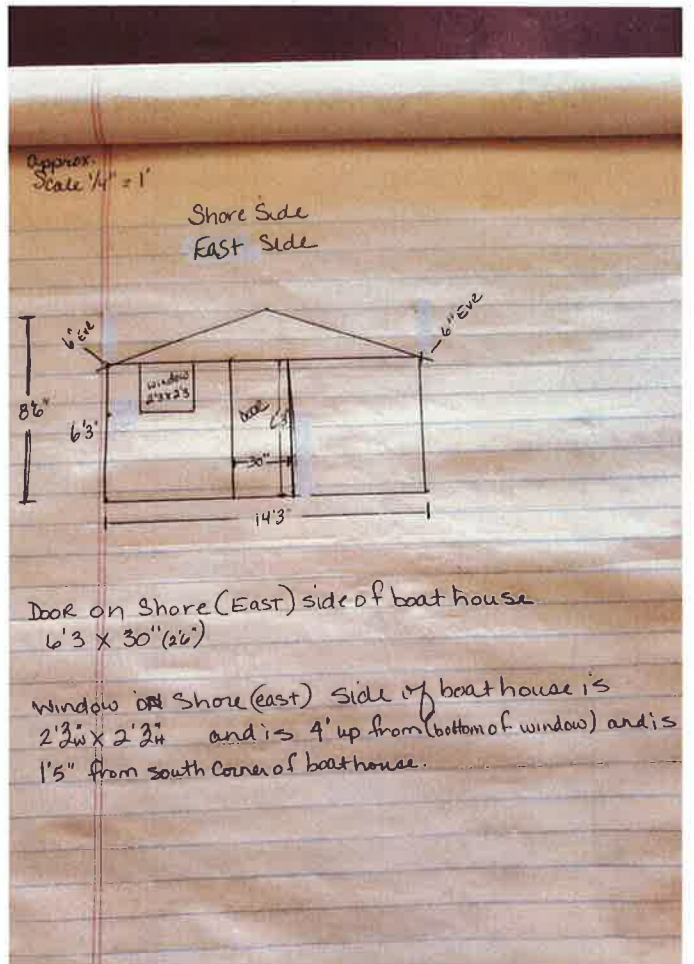 approx.
Scale 1/4" = 1'
Shore Side
East Side
6" Eve
6" Eve
8'6"
window
2'3 x 2'3
6'3"
DOOR
6'3"
30"
14'3
DOOR on Shore (East) side of boat house
6'3 X 30" (2'6")
Window on Shore (east) side of boathouse is
2'3"W x 2'3"H and is 4' up from (bottom of window) and is
1'5" from south corner of boathouse.